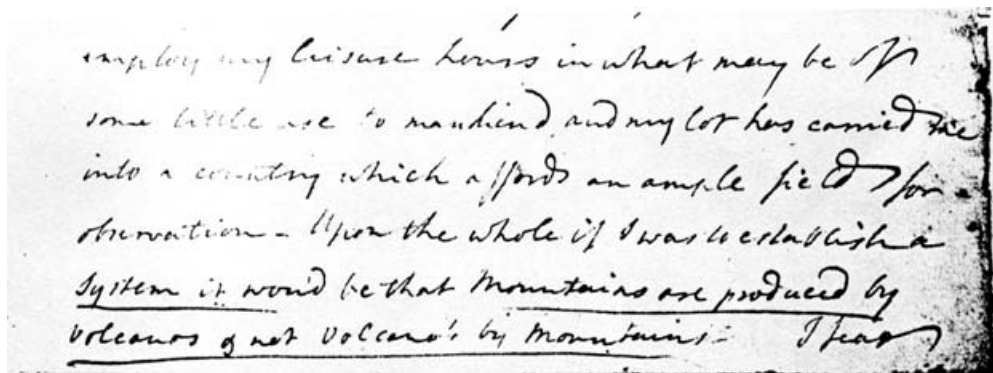 employ my leisure hours in what may be of
some little use to mankind and my lot has carried me
into a country which affords an ample field for
observation - Upon the whole if I was to establish a
System it would be that Mountains are produced by
Volcanos & not Volcano's by Mountains - I fear